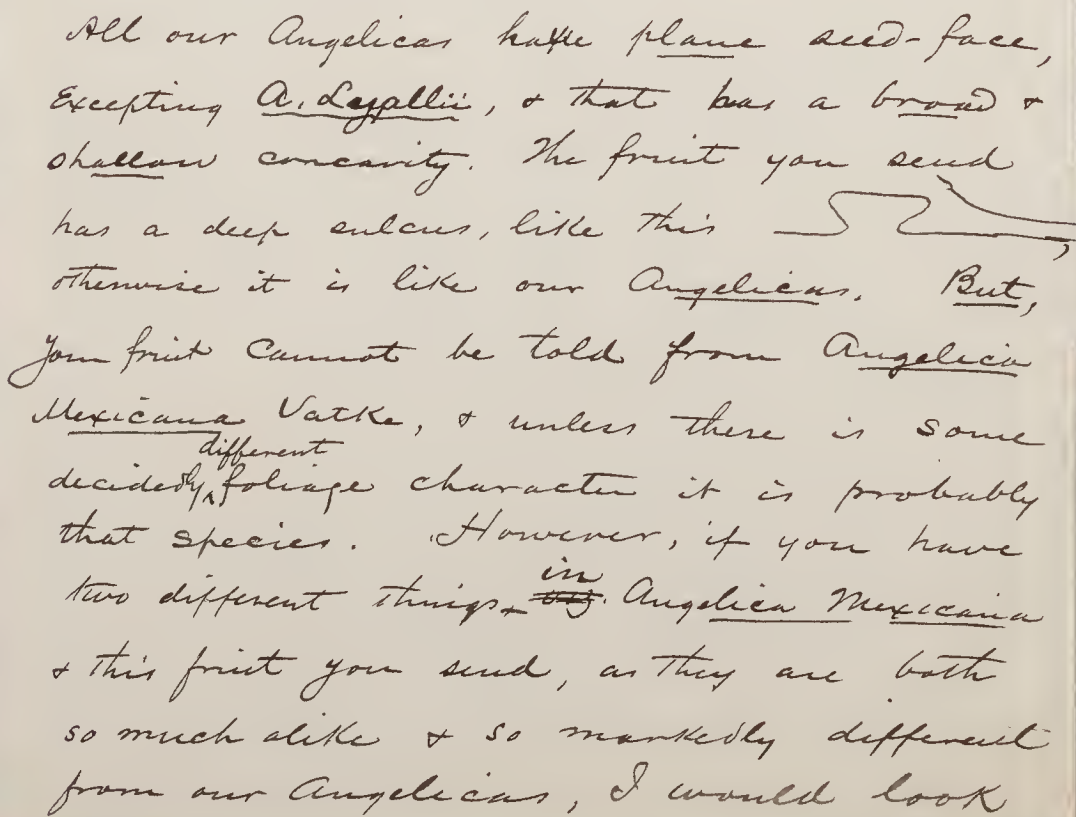 All our Angelicas have plane seed-face,
Excepting A. Lyallii, & that has a broad &
shallow concavity. The fruit you send
has a deep sulcus, like this ,
otherwise it is like our Angelicas. But,
your fruit cannot be told from Angelica
Mexicana Vatke, & unless there is some
different
decidedly foliage character it is probably
that species. However, if you have
in
two different things Angelica Mexicana
& this fruit you send, as they are both
so much alike & so markedly different
from our Angelicas, I would look